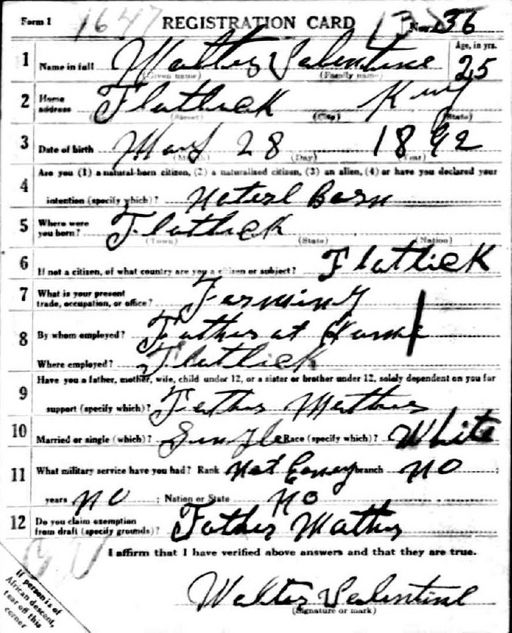 Form 1 1647 REGISTRATION CARD No. 36
1 Name in full Walter Valentine Age, in yrs. 25
(Given name) (Family name)
2 Home address Flatlick Ky
(Street) (City) (State)
3 Date of birth May 28 1892
(Month) (Day) (Year)
Are you (1) a natural-born citizen, (2) a naturalized citizen, (3) an alien, (4) or have you declared your
4 intention (specify which)? Naterl Born
5 Where were you born? Flatlick
(Town) (State) (Nation)
6 If not a citizen, of what country are you a citizen or subject? Flatlick
7 What is your present trade, occupation, or office? Farming
8 By whom employed? Father at Home
Where employed? Flatlick
Have you a father, mother, wife, child under 12, or a sister or brother under 12, solely dependent on you for
9 support (specify which)? Father Mother
10 Married or single (which)? Single Race (specify which)? White
11 What military service have you had? Rank Not branch no ;
years no ; Nation or State no
12 Do you claim exemption from draft (specify grounds)? Father Mother
I affirm that I have verified above answers and that they are true.
Walter Valentine
(Signature or mark)
If person is of
African descent,
tear off this
corner